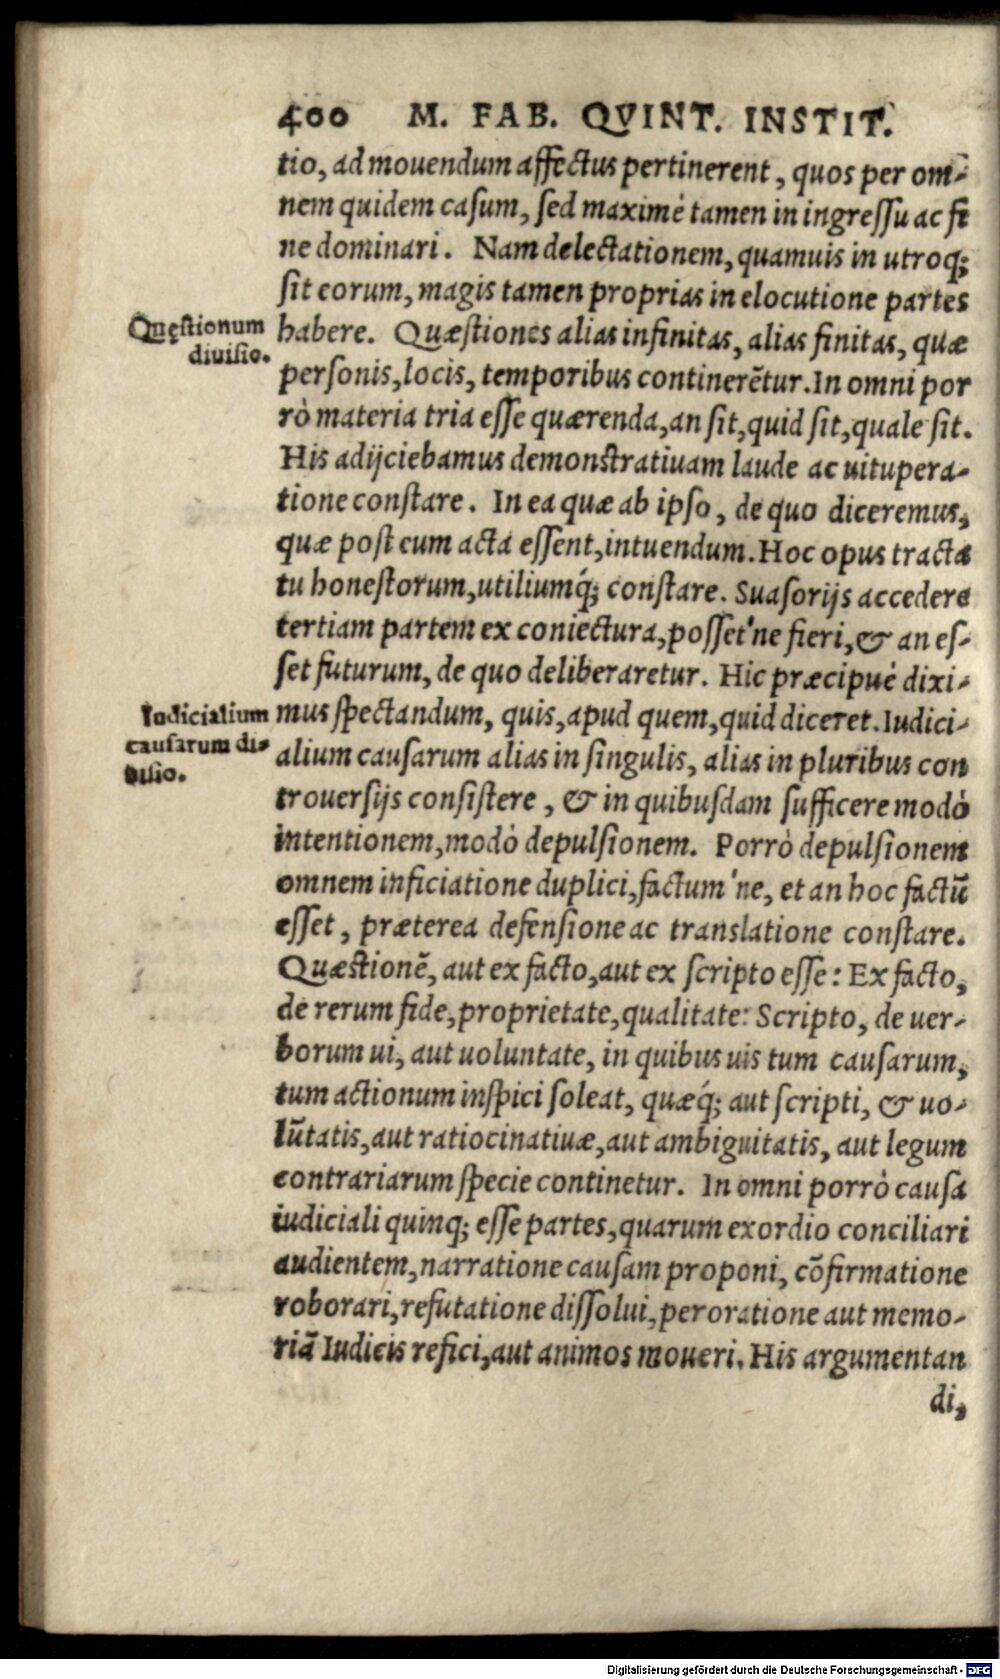 400 M. FAB. QVINT. INSTIT.
tio, ad mouendum affectus pertinerent, quos per om-
nem quidem casum, sed maximè tamen in ingressu ac fi
ne dominari. Nam delectationem, quamuis in utroq;
sit eorum, magis tamen proprias in elocutione partes
Quęstionum
diuisio.
habere. Quæstiones alias infinitas, alias finitas, quæ
personis, locis, temporibus continerẽtur. In omni por
rò materia tria esse quærenda, an sit, quid sit, quale sit.
His adijciebamus demonstratiuam laude ac uitupera-
tione constare. In ea quæ ab ipso, de quo diceremus,
quæ post eum acta essent, intuendum. Hoc opus tracta
tu honestorum, utiliumq́; constare. Suasorijs accedere
tertiam partem ex coniectura, posset'ne fieri, & an es-
set futurum, de quo deliberaretur. Hic præcipuè dixi-
Iudicialium
causarum di-
uisio.
mus spectandum, quis, apud quem, quid diceret. Iudici-
alium causarum alias in singulis, alias in pluribus con
trouersijs consistere, & in quibusdam sufficere modò
intentionem, modò depulsionem. Porrò depulsionem
omnem inficiatione duplici, factum'ne, et an hoc factũ
esset, præterea defensione ac translatione constare.
Quæstionẽ, aut ex facto, aut ex scripto esse: Ex facto,
de rerum fide, proprietate, qualitate: Scripto, de uer-
borum ui, aut uoluntate, in quibus uis tum causarum,
tum actionum inspici soleat, quæq́; aut scripti, & uo-
lũtatis, aut ratiocinatiuæ, aut ambiguitatis, aut legum
contrariarum specie continetur. In omni porrò causa
iudiciali quinq; esse partes, quarum exordio conciliari
audientem, narratione causam proponi, cõfirmatione
roborari, refutatione dissolui, peroratione aut memo-
riã Iudicis refici, aut animos moueri. His argumentan
di,
Digitalisierung gefördert durch die Deutsche Forschungsgemeinschaft - DFG